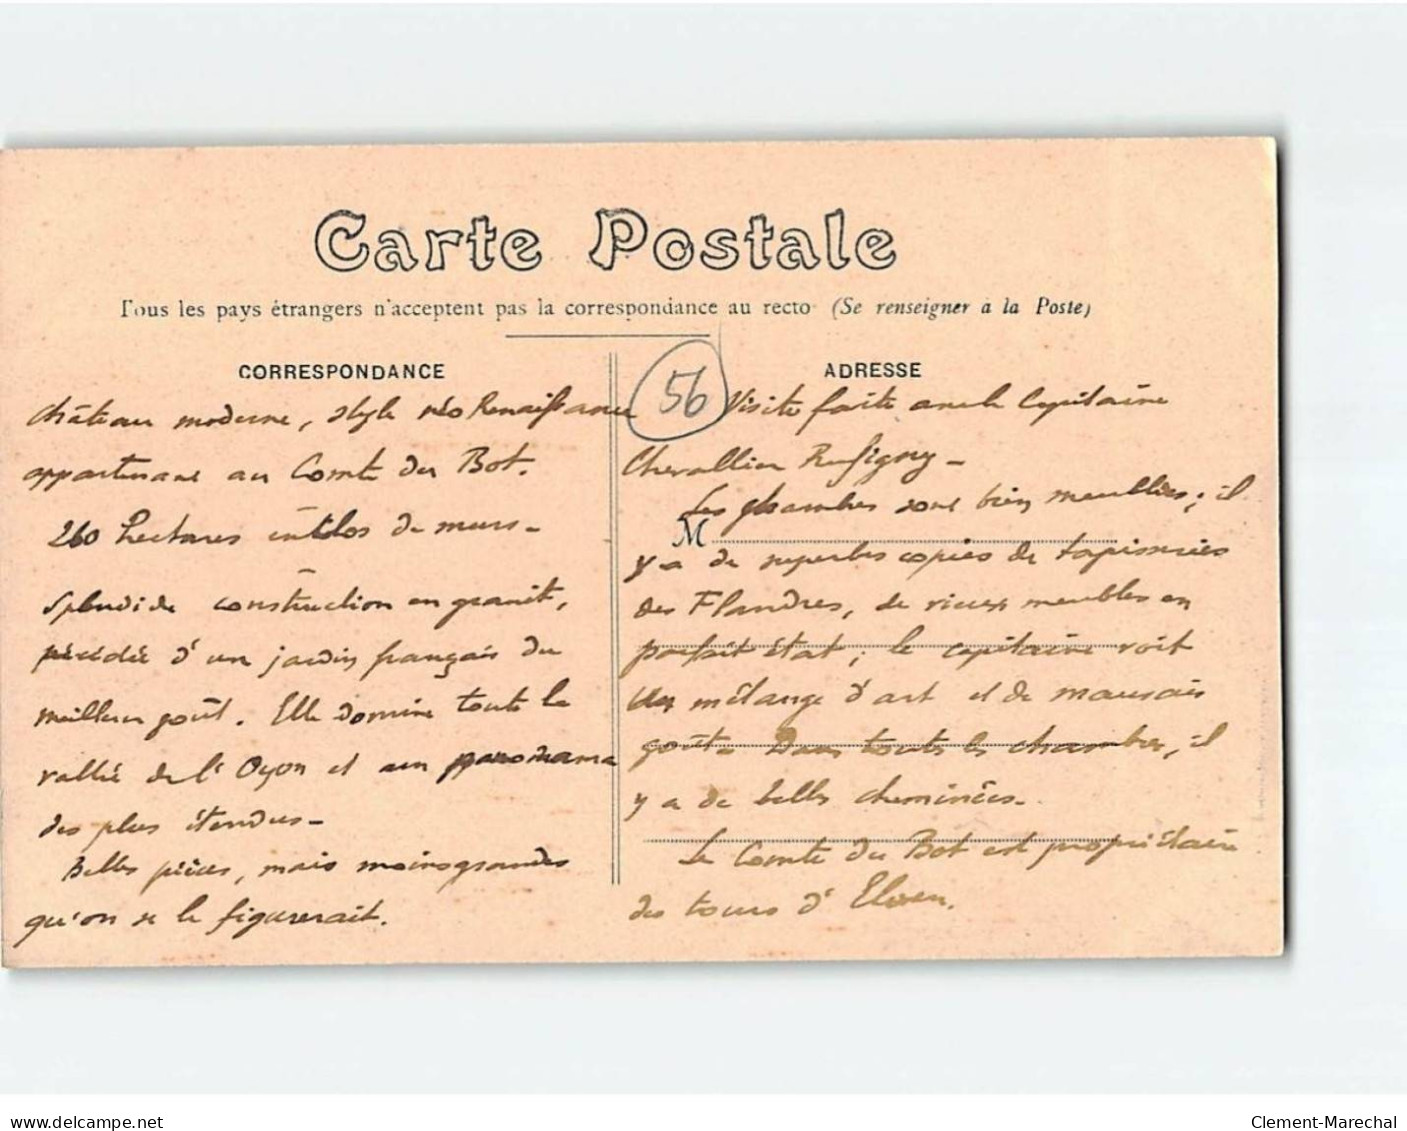 Carte Postale
Tous les pays étrangers n'acceptent pas la correspondance au recto (Se renseigner à la Poste)
CORRESPONDANCE
château moderne, style néo Renaissance
appartenant au Comte du Bot.
260 hectares enclos de murs -
Splendide construction en granit,
précédée d'un jardin français du
meilleur goût. Elle domine toute la
vallée de l'Oyon et un panorama
des plus étendus -
Belles pièces, mais moins grandes
qu'on se le figurerait.
56
ADRESSE
Visite faite avec le Capitaine
Chevallier Rufigny -
Les chambres sont bien meublées ; il
M
y a de superbes copies de tapisseries
des Flandres, de vieux meubles en
parfait état ; le capitaine voit
un mélange d'art et de mauvais
goût - Dans toutes les chambres, il
y a de belles cheminées -
Le Comte du Bot est propriétaire
des tours d'Elven.
www.delcampe.net
Clement-Marechal